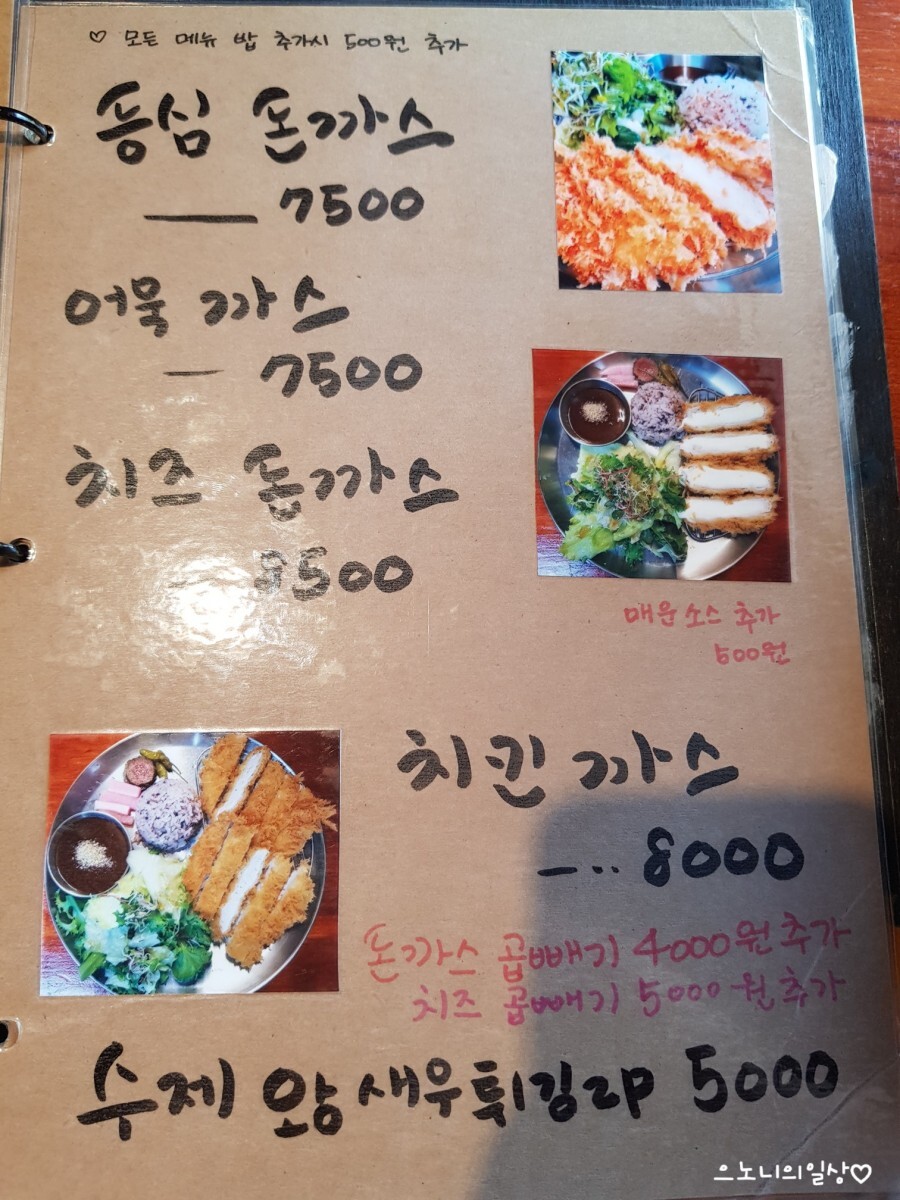 ♡ 모든 메뉴 밥 추가시 500원 추가
등심 돈까스
7500
어묵 까스
7500
치즈 돈까스
8500
매운소스 추가
500원
치킨 까스
8000
돈까스 곱빼기 4000원추가
치즈 곱빼기 5000원추가
수제 왕새우튀김2P 5000
으노니의일상♡